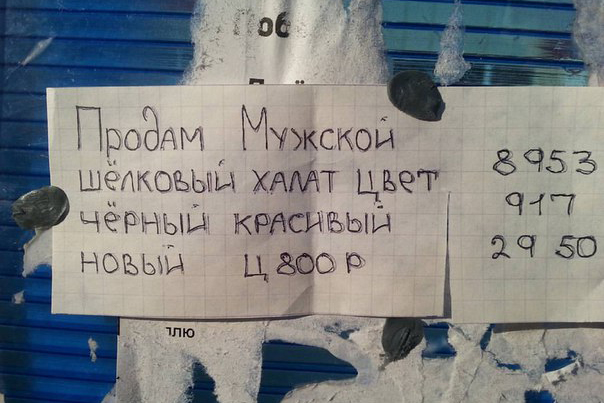 Продам Мужской
шёлковый халат цвет
чёрный красивый
новый ц 800 р
8953
917
29 50
тлю